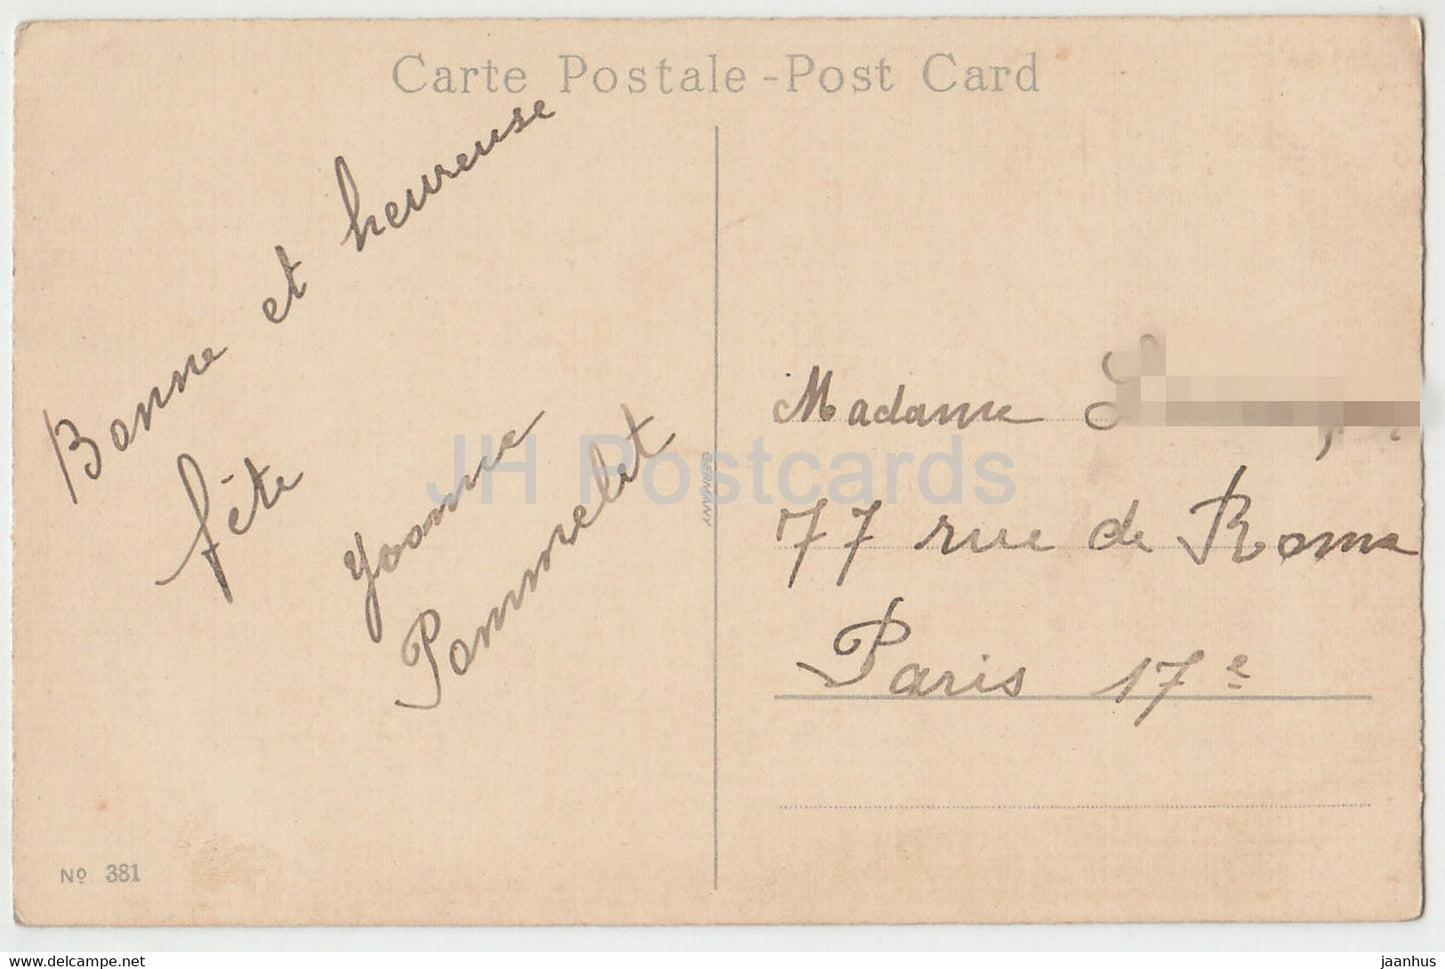 Carte Postale - Post Card
Bonne et heureuse
fête
Yvonne
Pommelet
GERMANY
Madame
77 rue de Rome
Paris 17e
No 381
JH Postcards
delcampe.net
jaanhus